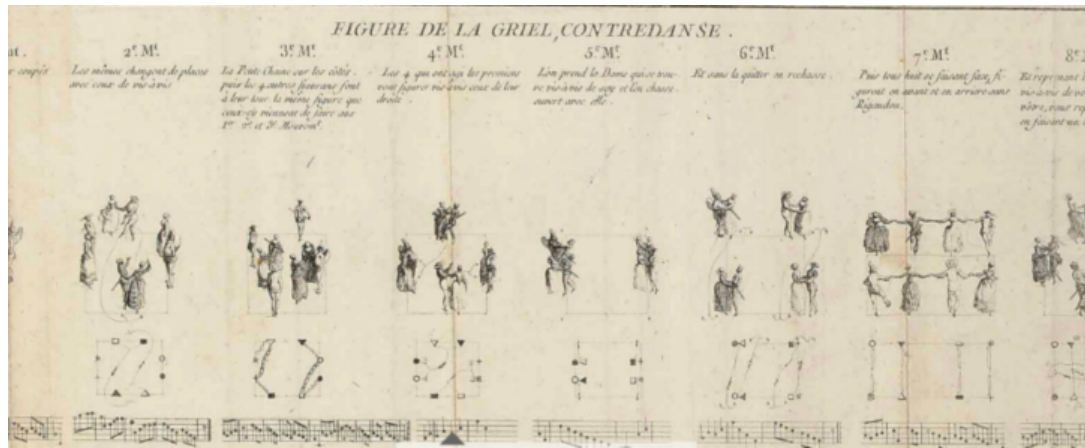 FIGURE DE LA GRIEL, CONTREDANSE.
2.e M.t
Les mêmes changent de places
avec ceux de vis-à-vis
3.e M.t
La Petite Chaine sur les côtés,
puis les 4 autres figurans font
à leur tour la même figure que
ceux-cy viennent de faire aux
1.er 2.e et 3.e Mouvem.t
4.e M.t
Les 4 qui ont agi les premiers
vont figurer vis-à-vis ceux de leur
droite.
5.e M.t
L'on prend la Dame qui se trou-
ve vis-à-vis de soy et l'on chasse
ouvert avec elle.
6.e M.t
Et sans la quitter on rechasse.
7.e M.t
Puis tous huit se faisant face, fi-
gurent en avant et en arriere sans
Rigaudon.
8.e
Et reprenant
vis-à-vis de
vôtre, vous
en faisant un